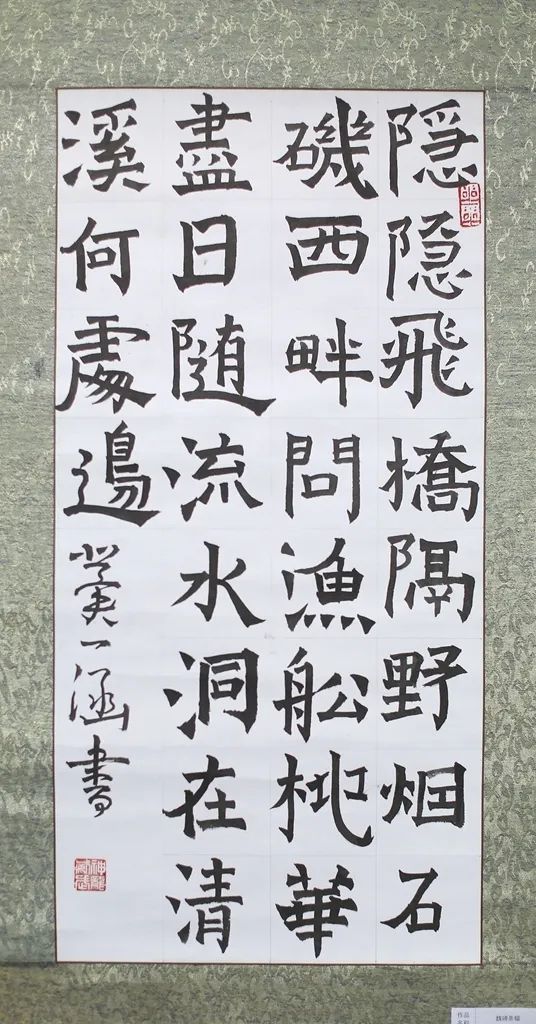 隐隐飛橋隔野烟石
磯西畔問漁船桃華
盡日随流水洞在清
溪何處邊
一涵書
作品名称